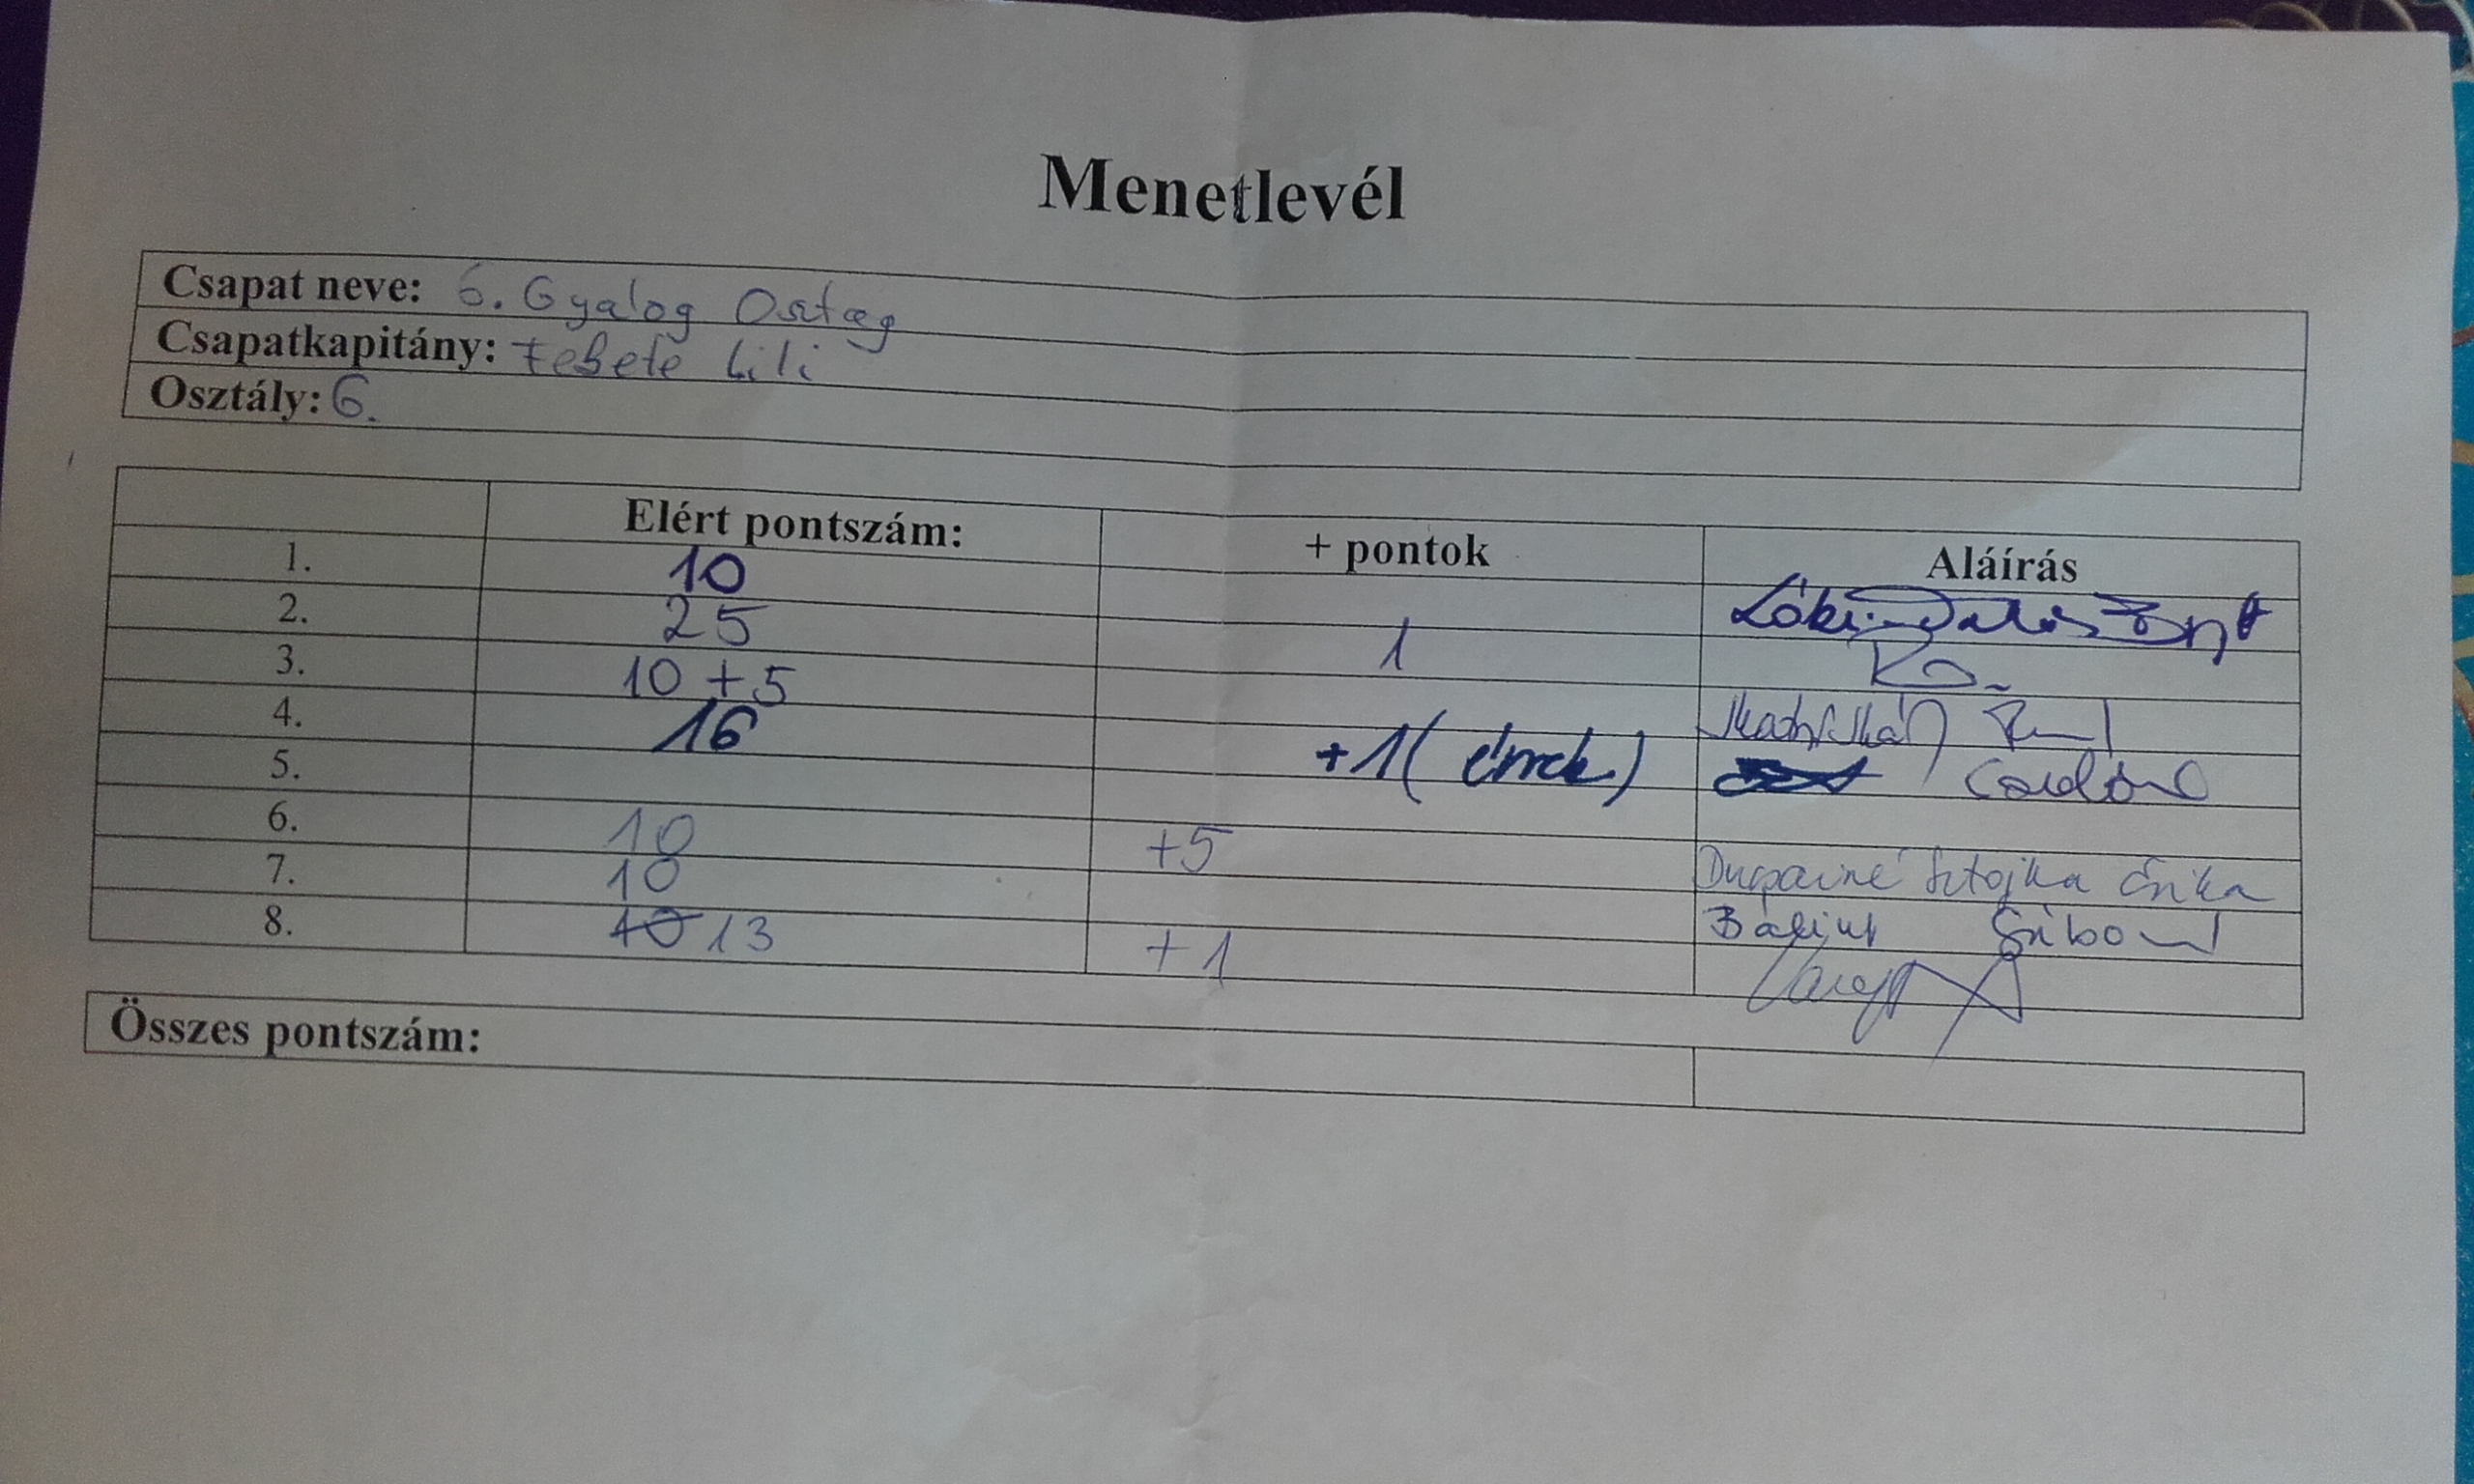 Menetlevél
Csapat neve: 6. Gyalog Osztag
Csapatkapitány: Fekete Lili
Osztály: 6.
Elért pontszám: + pontok Aláírás
1. 10
2. 25 1
3. 10 + 5
4. 16 +1 (
5.
6. 10 +5 Sztojka Erika
7. 10 Bálint
8. 10 13 +1
Összes pontszám: